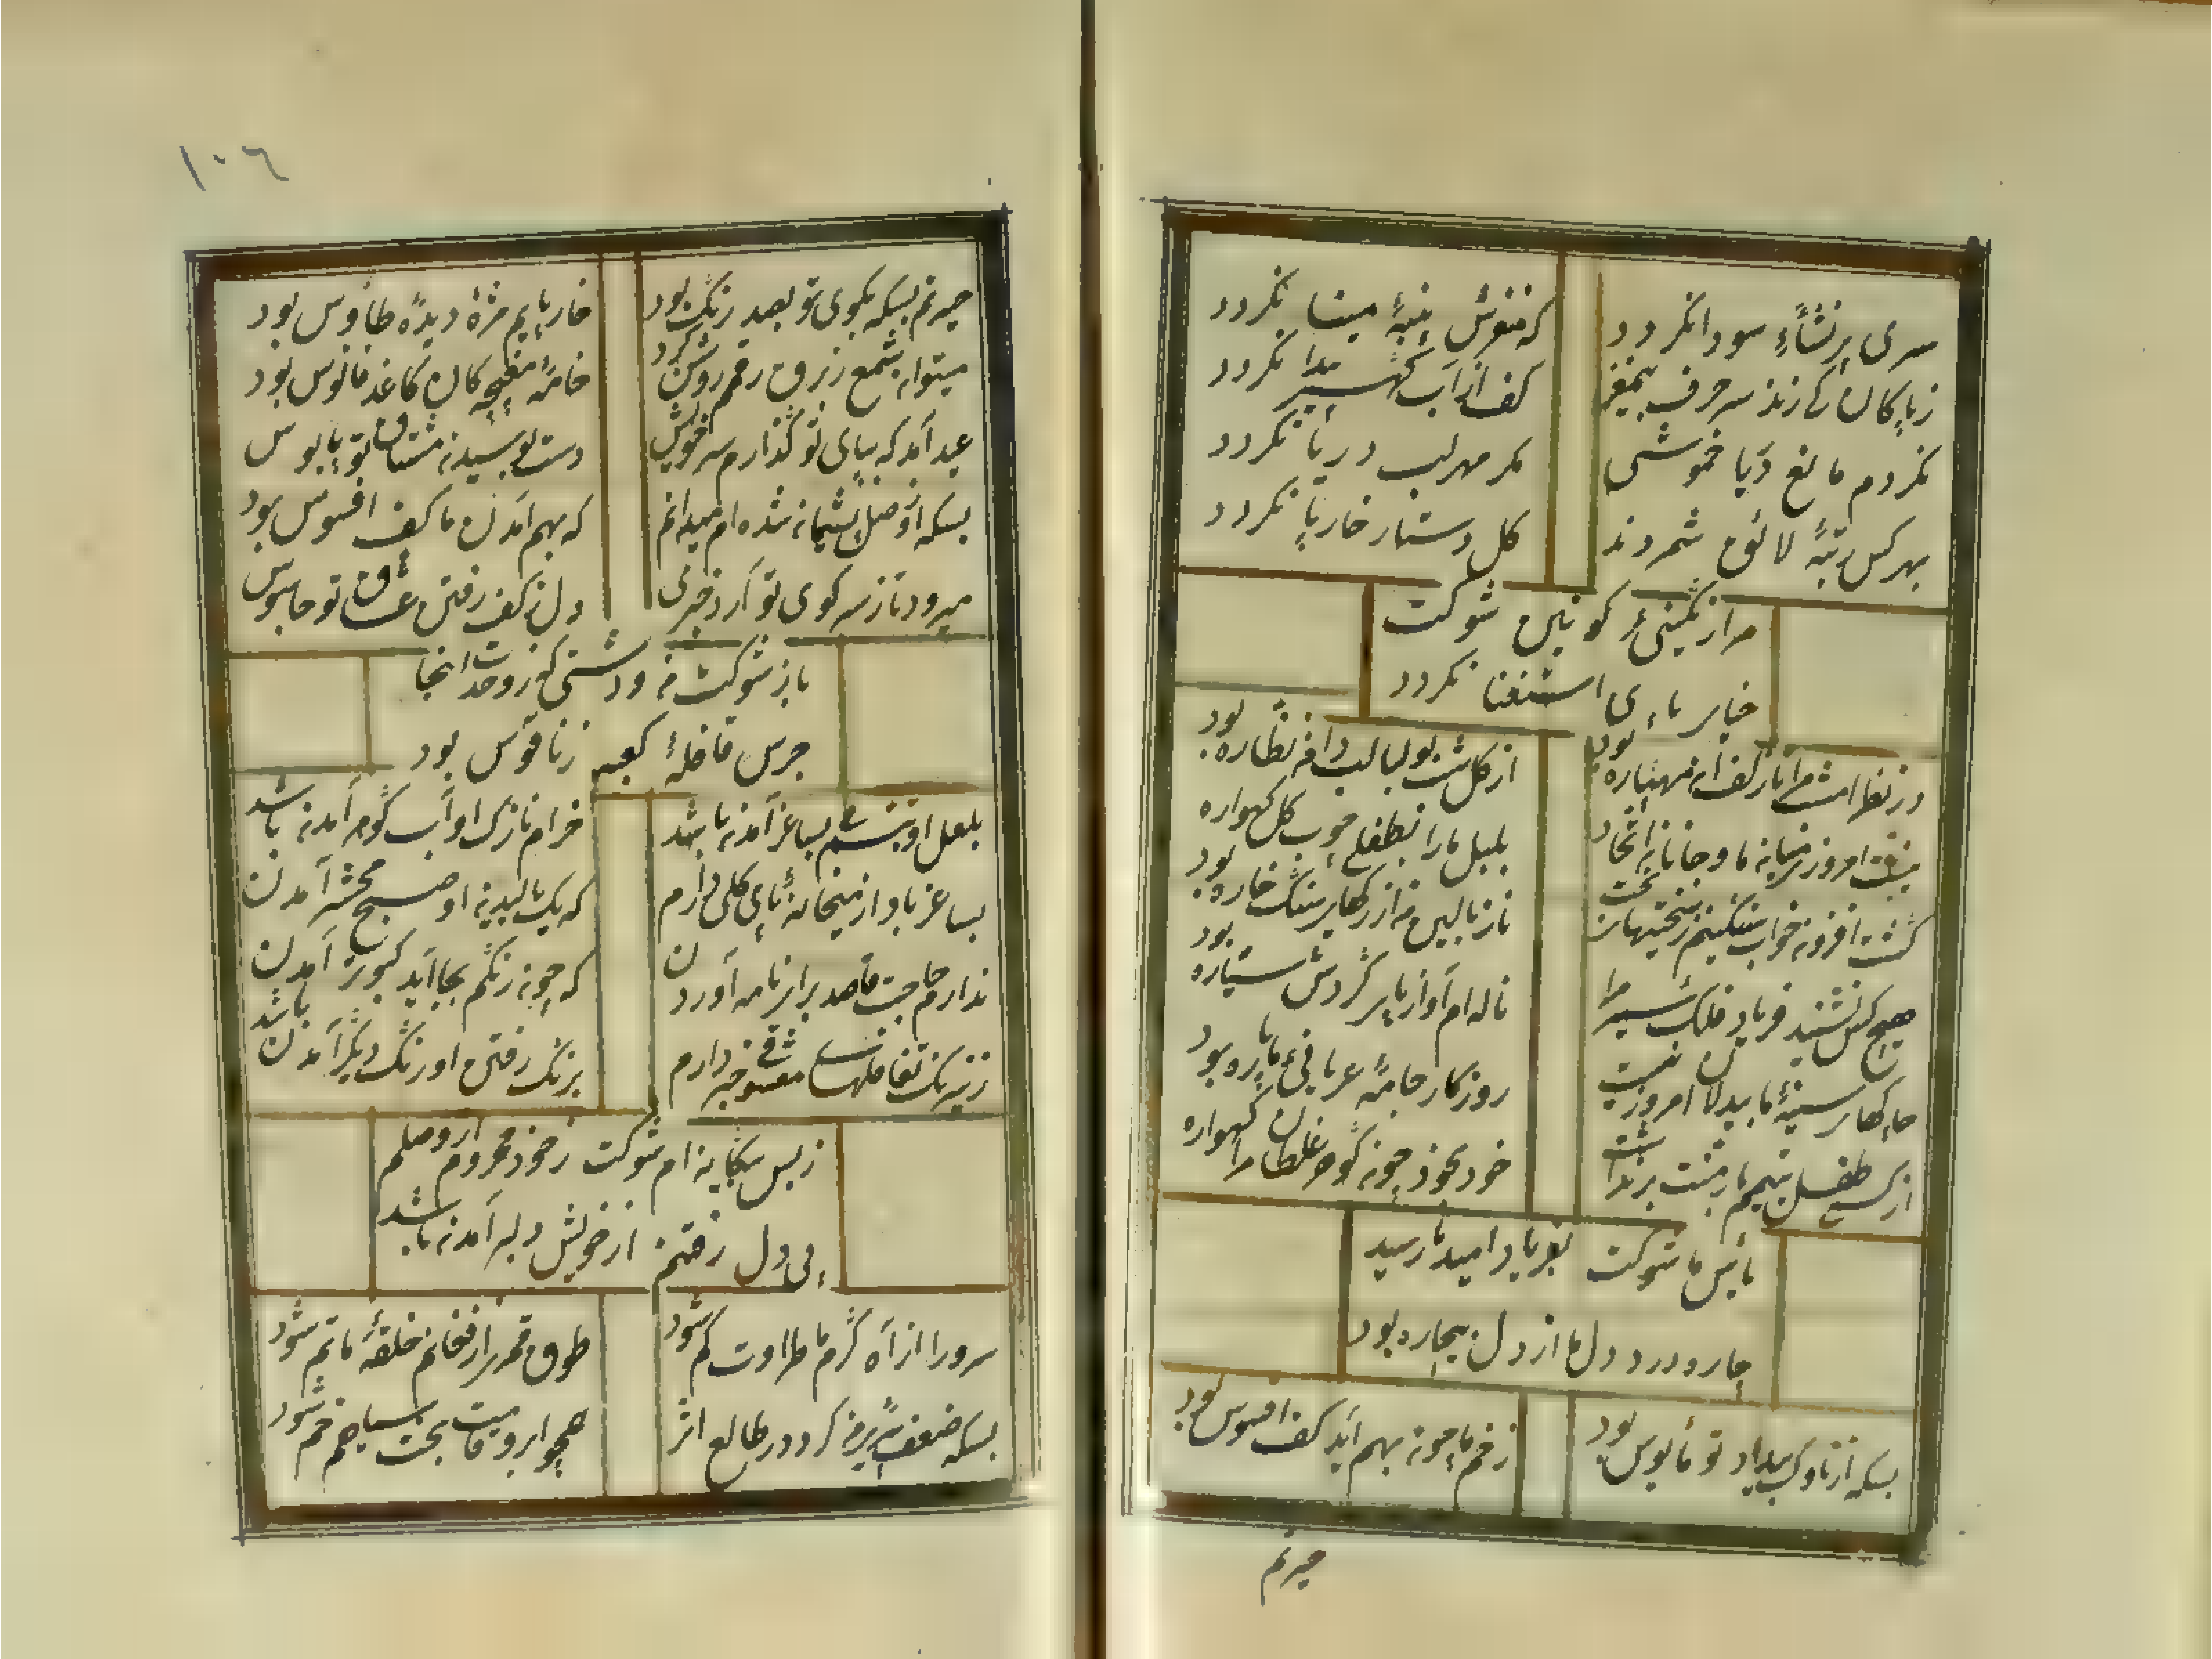 سری پر نشاءٔ سودا نکردد
که مغزش پنبهٔ مینا نکردد
زپاکان کی زند سر حرف بیمغز
کف از آب کهر پیدا نکردد
نکردم مانع دریا خموشی
مکر مهر لب دریا نکردد
بهر کس رتبهٔ لائق شمردند
کل دستار خار پا نکردد
مرا زنکینیٔ کونین شوکت
حنای پای استغنا نکردد
در نظر امشب مرا تا زلف آن مهپاره بود
از کل شب بو لبالب دامن نظاره بود
نیست امروز میانه ما و جانان اتحاد
بلبل ما را بطفلی چوب کل کهواره بود
کشت افزون خواب سنکینم ز سختیهای بخت
تار بالین من از رکهای سنک خاره بود
هیچ کس نشنید فریاد فلک سیر مرا
ناله ام آواز پای کردش سیاره بود
چاکهای سینهٔ ما بیدلان امروز نیست
روزکار جامهٔ عریانیٔ ما پاره بود
از کسی طفل یتیم ما منت برنداشت
خود بخود چون کوهر غلطان مرا کهواره
یاس ما شوکت بفریاد امید ما رسید
چاره درد دل ما از دل بیچاره بود
بسکه از ناوک بیداد تو مأیوس بود
زخم ما چون بهم آید کف افسوس بود
حیرتم
١٠٦
حیرتم بسکه بکوی تو بصد رنک بود
خار پایم مژهٔ دیدهٔ طاوس بود
میتوان شمع ز برق رقم روشن کرد
خامهٔ مغبچه کان کاغذ فانوس بود
عید آمد که بپای تو کذارم سر خویش
دست بوسیدن مشتاق تو پابوس
بسکه از وصل پشیمان شده ام میدانم
که بهم آمدن ما کف افسوس بود
میرود تا ز سر کوی تو آرد خبری
دل ز کف رفتن عشاق تو جاسوس
باز شوکت من و دشتی که ز وحدت انجا
جرس قافلهٔ کعبه ز ناقوس بود
بلعل او تبسم بساغر آمدن باشد
خرام نازک او آب کوهر آمدن باشد
بساغر باد از میخانهٔ پای کلی دارم
که یک بالیدن او صبح محشر آمدن
ندارم حاجت قاصد برای نامه آوردن
که چون رنکم بجا آید کبوتر آمدن باشد
ز نیرنک تغافلهای معشوقی خبر دارم
برنک رفتن او رنک دیکر آمدن
ز بس بیکانه ام شوکت ز خود محروم از وصلم
پی دل رفتنم از خویش دلبر آمدن باشد
سرو را از آه کرم ما طراوت کم شود
طوق قمری از فغانم حلقهٔ ماتم شود
بسکه ضعف پیریم کرد در طالع اثر
همچو ابرو قامت بخت سیاهم خم شود